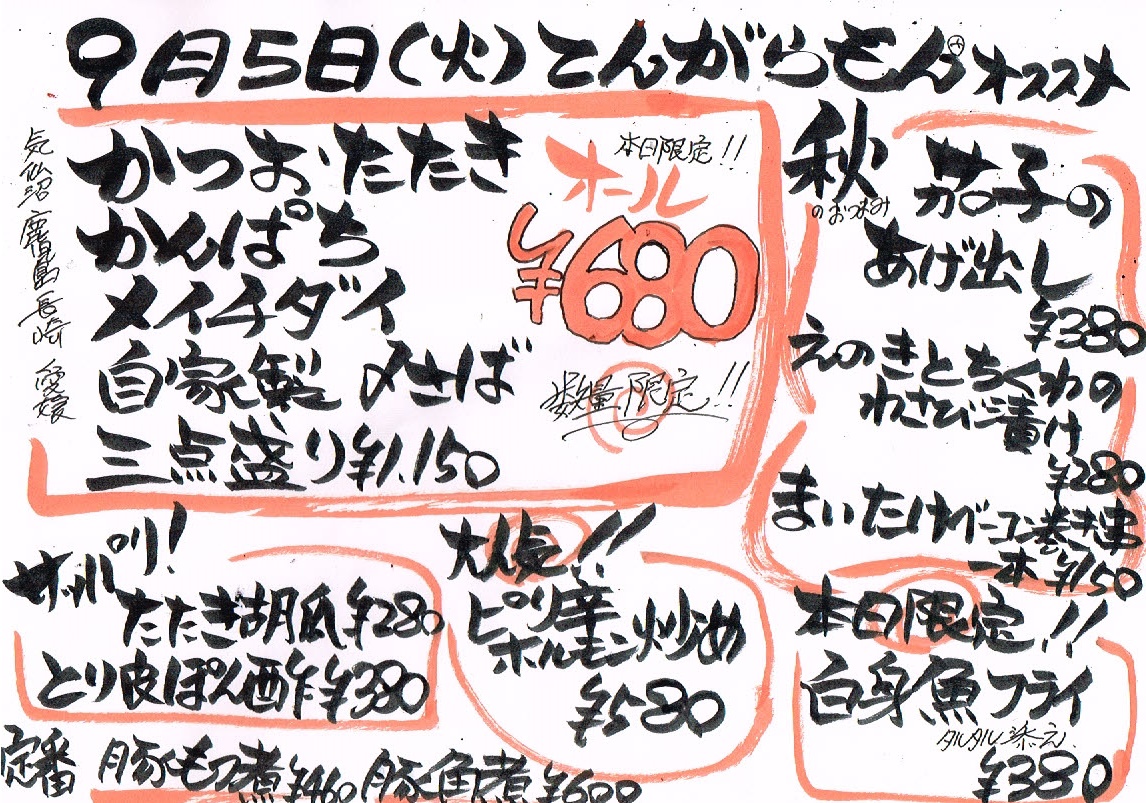 9月5日(火)とんがらもんオススメ
気仙沼 鹿児島 長崎 愛媛
かつお・たたき
かんぱち
メイチダイ
自家製 〆さば
三点盛り¥1.150
本日限定!!
オール
¥680
数量限定!!
秋のおつまみ
茄子の
あげ出し
¥380
えのきとちくわの
わさび漬け
¥280
まいたけベーコン巻き串
一本¥150
サッパリ!
たたき胡瓜¥280
とり皮ぽん酢¥380
大人気!!
ピリ辛
ホルモン炒め
¥580
本日限定!!
白身魚フライ
タルタル添え
¥380
定番 豚もつ煮¥460 豚角煮¥600